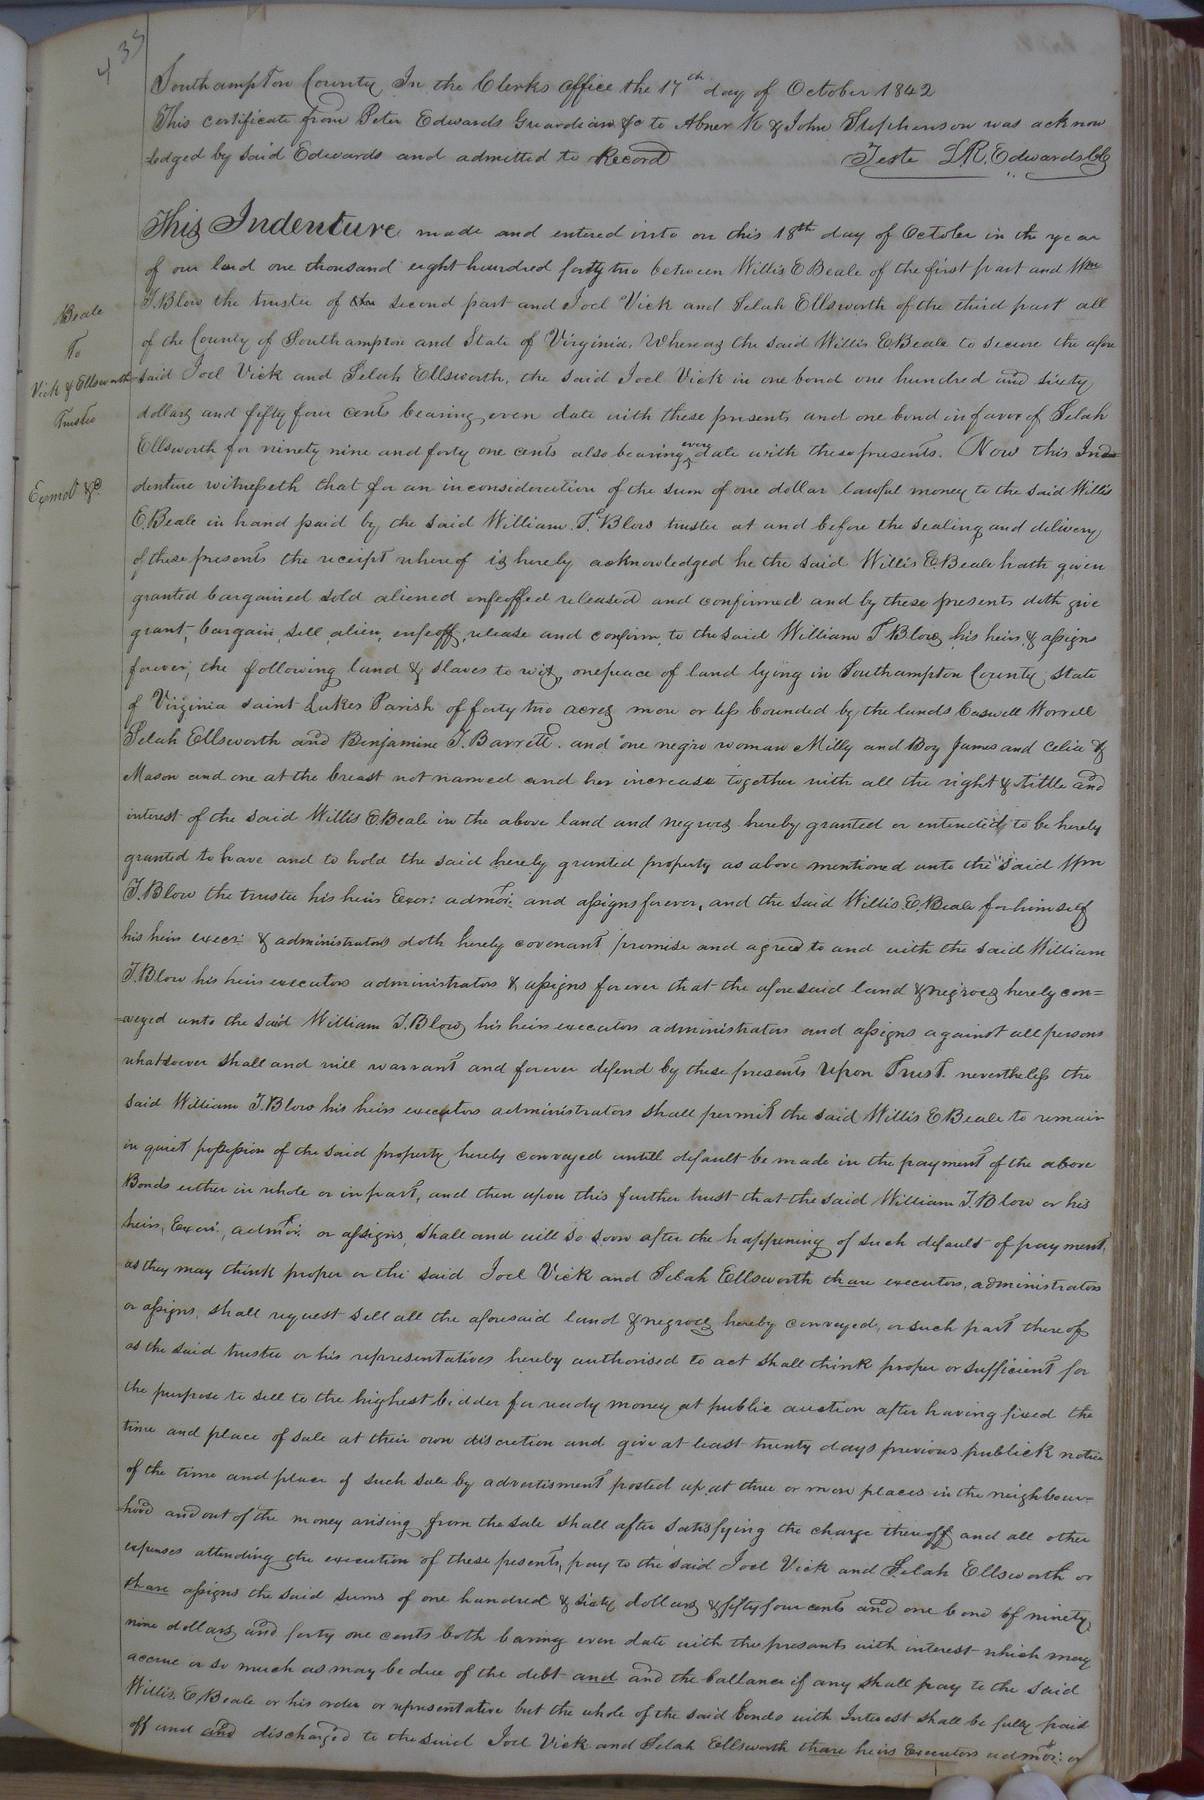 435
Southampton County In the Clerks office the 17th day of October 1842
This certificate from Peter Edwards Guardian &c to Abner K & John Stephenson was acknow
ledged by said Edwards and admitted to Record
Teste L.R. Edwards Clk
This Indenture made and entered into on this 18th day of October in the year
of our lord one thousand eight hundred forty two between Willis E Beale of the first part and Wm
T. Blow the trustee of the second part and Joel Vick and Selah Ellsworth of the third part all
of the County of Southampton and State of Virginia. Whereas the said Willis E. Beale to secure the afore
said Joel Vick and Selah Ellsworth, the said Joel Vick in one bond one hundred and sixty
dollars and fifty four cents bearing even date with these presents and one bond in favor of Selah
Ellsworth for ninety nine and forty one cents also bearing even date with these presents. Now this In
denture witnesseth that for an inconsideration of the sum of one dollar lawful money to the said Willis
E. Beale in hand paid by the said William T. Blow trustee at and before the sealing and delivery
of these presents the receipt whereof is hereby acknowledged he the said Willis E. Beale hath given
granted bargained sold aliened enfeoffed released and confirmed and by these presents doth give
grant, bargain, sell, alien, enfeoff, release and confirm to the said William T Blow his heirs & assigns
forever, the following land & slaves to wit, one peace of land lying in Southampton County State
of Virginia saint Lukes Parish of forty two acres more or less bounded by the lands Caswell Worrell
Selah Ellsworth and Benjamine T. Barrett. and one negro woman Milly and Boy James and Celia &
Mason and one at the breast not named and her increase together with all the right & tittle and
interest of the said Willis E. Beale in the above land and negroes hereby granted or entended to be hereby
granted to have and to hold the said hereby granted property as above mentioned unto the said Wm
T. Blow the trustee his heirs Exor: admor: and assigns forever, and the said Willis E. Beale for himself
his heirs execr: & administrators doth hereby covenant promise and agree to and with the said William
T. Blow his heirs executors administrators & assigns forever that the aforesaid land & negroes hereby con=
=veyed unto the said William T. Blow his heirs executors administrators and assigns against all persons
whatsoever shall and will warrant and forever defend by these presents Upon Trust. nevertheless the
said William T. Blow his heirs executors administrators shall permit the said Willis E Beale to remain
in quiet possession of the said property hereby conveyed untill default be made in the payment of the above
Bonds either in whole or in part, and then upon this further trust that the said William T. Blow or his
heirs, Exor:, admor: or assigns, shall and will so soon after the happening of such default of payment,
as they may think proper or the said Joel Vick and Selah Ellsworth thare executors, administrators
or assigns, shall request sell all the aforesaid land & negroes hereby conveyed, or such part thereof
as the said trustee or his representatives hereby authorised to act shall think proper or sufficient for
the purpose to sell to the highest bidder for ready money at public auction after having fixed the
time and place of sale at their own discretion and give at least twenty days previous publick notice
of the time and place of such sale by advertisment posted up at three or more places in the neighbour-
=hood and out of the money arising from the sale shall after satisfying the charge thereoff and all other
expenses attending the execution of these pesents, pay to the said Joel Vick and Selah Ellsworth or
thare assigns the said sums of one hundred & sixty dollars & fifty four cents and one bond of ninety
nine dollars and forty one cents both baring even date with the presants with interest which may
accrue or so much as may be due of the debt and and the ballance if any shall pay to the said
Willis E. Beale or his order or representative but the whole of the said bonds with Interest shall be fully paid
off and and discharged to the said Joel Vick and Selah Ellsworth thare heirs Executors admor: or
Beale
To
Vick & Ellsworth
Trustee
Exmd &c